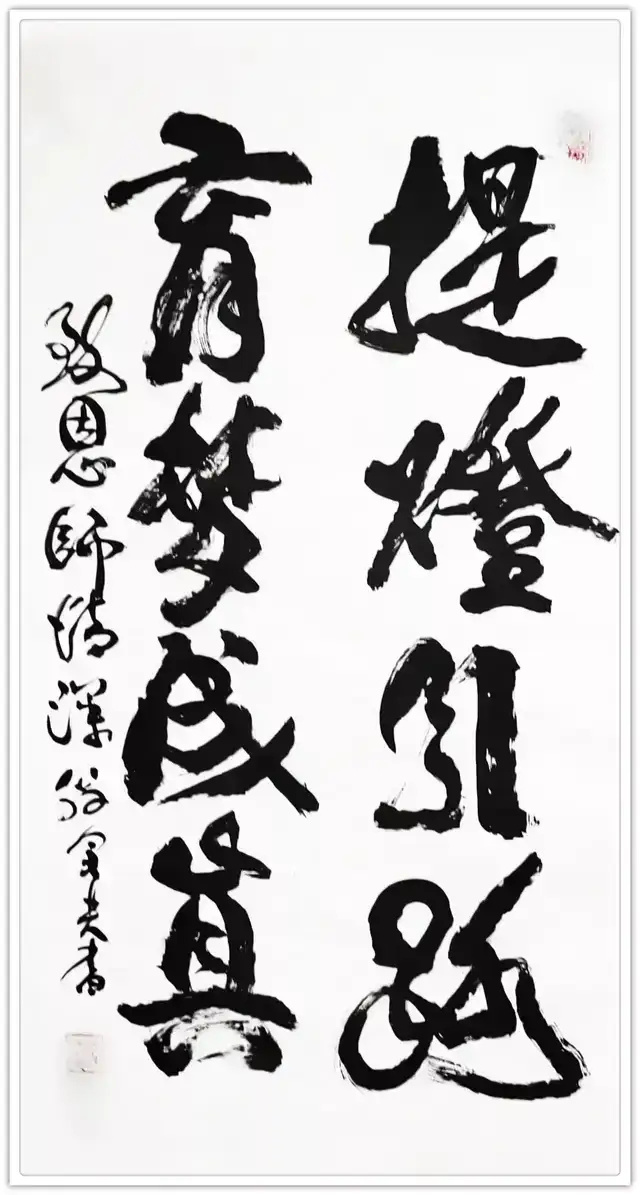 提燈引路
育夢成真
致恩師情深
書